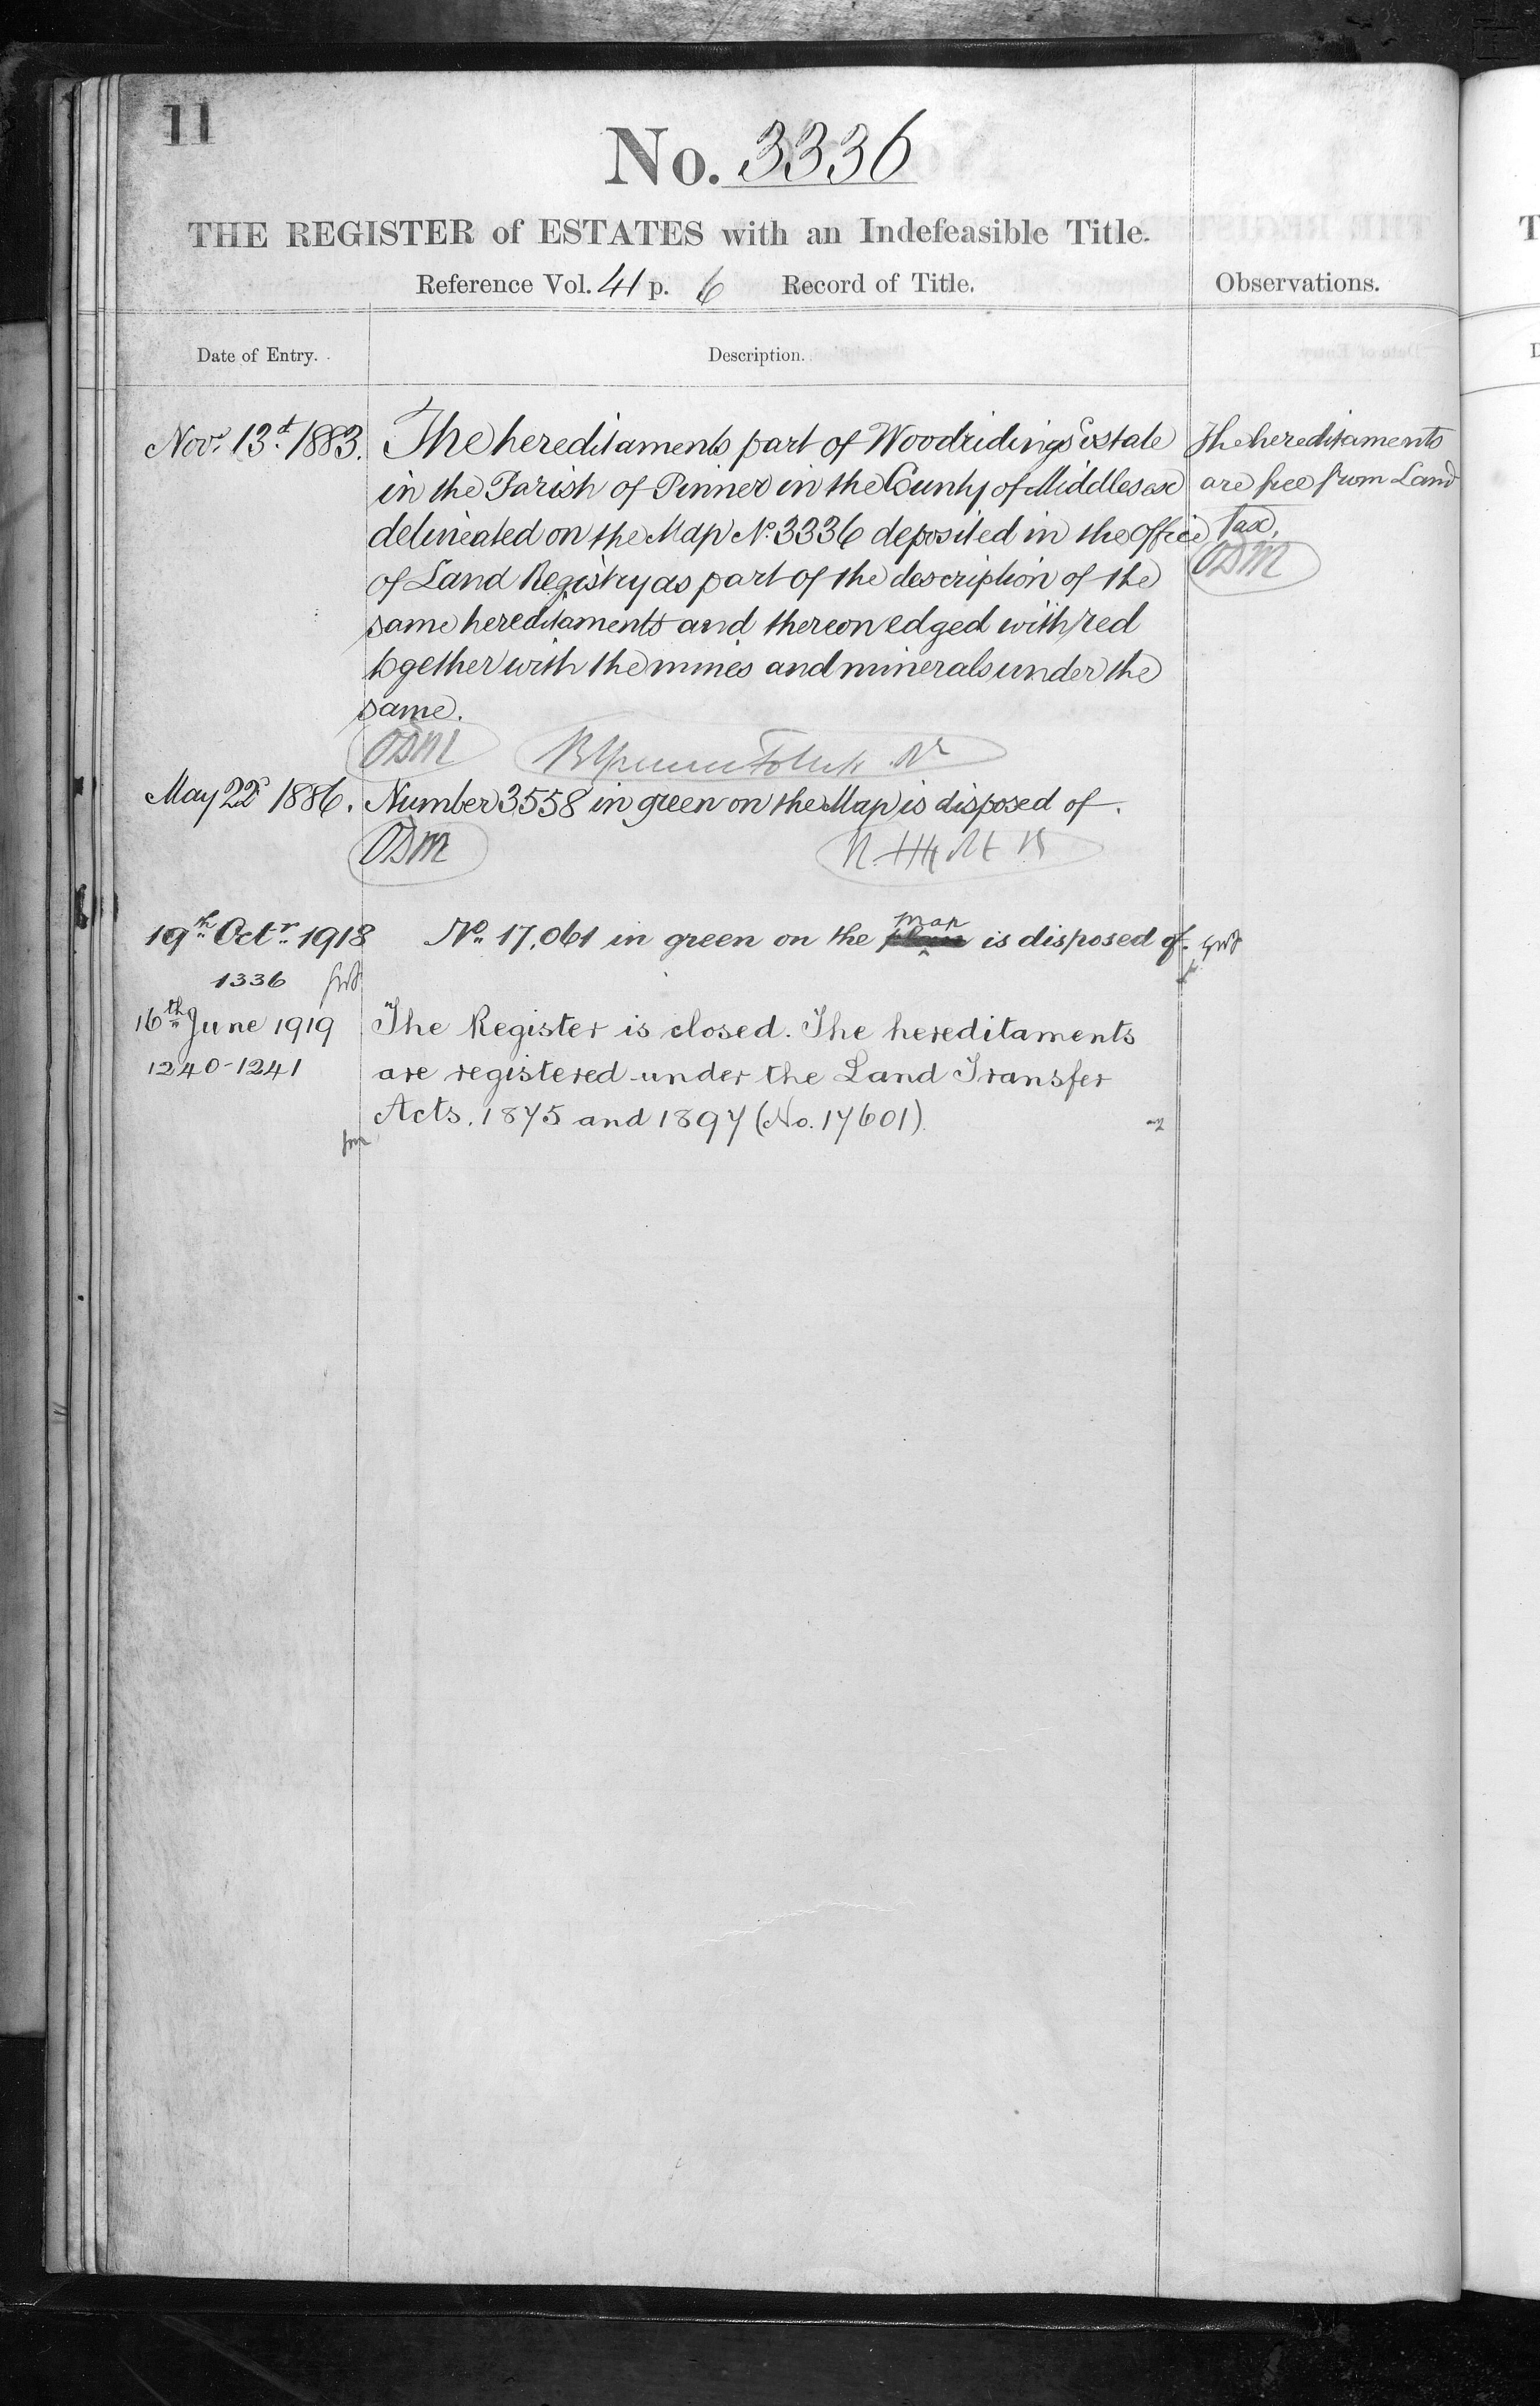 11
No. 3336
THE REGISTER of ESTATES with an Indefeasible Title.
Reference Vol. 41 p. 6 Record of Title.
Observations.
Date of Entry.
Description.
Novr. 13th 1883.
The hereditaments part of Woodridings Estate
in the Parish of Pinner in the County of Middlesex
delineated on the Map No. 3336 deposited in the Office
of Land Registry as part of the description of the
same hereditaments and thereon edged with red
together with the mines and minerals under the
same.
The hereditaments
are free from Land
Tax.
ODM
ODM
May 22d 1886.
Number 3558 in green on the Map is disposed of.
ODM
19th Octr. 1918
No. 17,061 in green on the map is disposed of.
1336
16th June 1919
The Register is closed. The hereditaments
1240-1241
are registered under the Land Transfer
Acts, 1875 and 1897 (No. 17601).